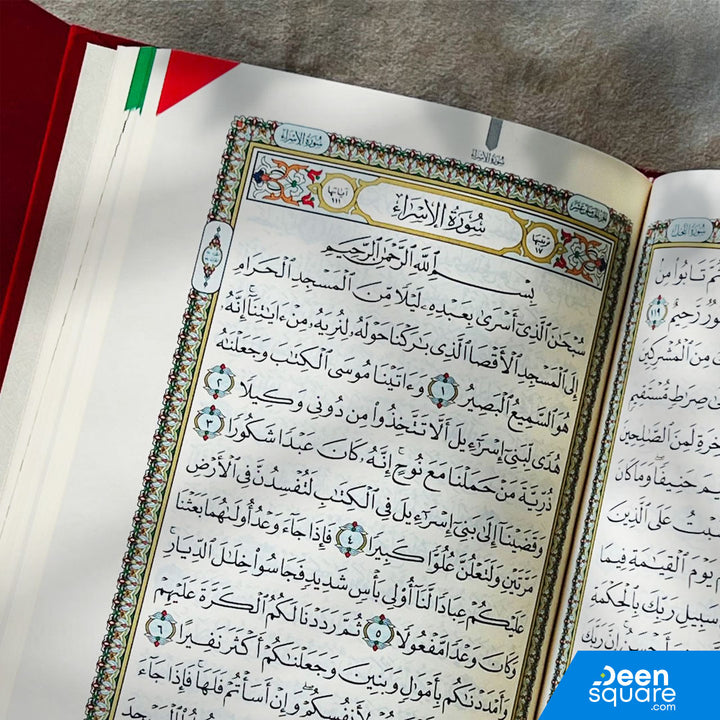 سُورَةُ الإِسْرَاءِ
سُورَةُ الإِسْرَاءِ
سُورَةُ الإِسْرَاءِ
ترتيبها ١٧
آياتها ١١١
بِسْمِ ٱللَّهِ ٱلرَّحْمَٰنِ ٱلرَّحِيمِ
سُبْحَٰنَ ٱلَّذِىٓ أَسْرَىٰ بِعَبْدِهِۦ لَيْلًا مِّنَ ٱلْمَسْجِدِ ٱلْحَرَامِ
إِلَى ٱلْمَسْجِدِ ٱلْأَقْصَا ٱلَّذِى بَٰرَكْنَا حَوْلَهُۥ لِنُرِيَهُۥ مِنْ ءَايَٰتِنَآ إِنَّهُۥ
هُوَ ٱلسَّمِيعُ ٱلْبَصِيرُ ١ وَءَاتَيْنَا مُوسَى ٱلْكِتَٰبَ وَجَعَلْنَٰهُ
هُدًى لِّبَنِىٓ إِسْرَٰٓءِيلَ أَلَّا تَتَّخِذُوا۟ مِن دُونِى وَكِيلًا ٢
ذُرِّيَّةَ مَنْ حَمَلْنَا مَعَ نُوحٍ إِنَّهُۥ كَانَ عَبْدًا شَكُورًا ٣
وَقَضَيْنَآ إِلَىٰ بَنِىٓ إِسْرَٰٓءِيلَ فِى ٱلْكِتَٰبِ لَتُفْسِدُنَّ فِى ٱلْأَرْضِ
مَرَّتَيْنِ وَلَتَعْلُنَّ عُلُوًّا كَبِيرًا ٤ فَإِذَا جَآءَ وَعْدُ أُولَىٰهُمَا بَعَثْنَا
عَلَيْكُمْ عِبَادًا لَّنَآ أُو۟لِى بَأْسٍ شَدِيدٍ فَجَاسُوا۟ خِلَٰلَ ٱلدِّيَارِ
وَكَانَ وَعْدًا مَّفْعُولًا ٥ ثُمَّ رَدَدْنَا لَكُمُ ٱلْكَرَّةَ عَلَيْهِمْ
وَأَمْدَدْنَٰكُم بِأَمْوَٰلٍ وَبَنِينَ وَجَعَلْنَٰكُمْ أَكْثَرَ نَفِيرًا ٦
لِأَنفُسِكُمْ وَإِنْ أَسَأْتُمْ فَلَهَا فَإِذَا جَآءَ
سُورَةُ النَّحْلِ
تَابُوا۟ مِنۢ
رَّحِيمٌ ١١٩
مِنَ ٱلْمُشْرِكِينَ
صِرَٰطٍ مُّسْتَقِيمٍ
لَمِنَ ٱلصَّٰلِحِينَ
حَنِيفًا وَمَا كَانَ
عَلَى ٱلَّذِينَ
يَوْمَ ٱلْقِيَٰمَةِ فِيمَا
سَبِيلِ رَبِّكَ بِٱلْحِكْمَةِ
إِنَّ رَبَّكَ
Deen
square
.com